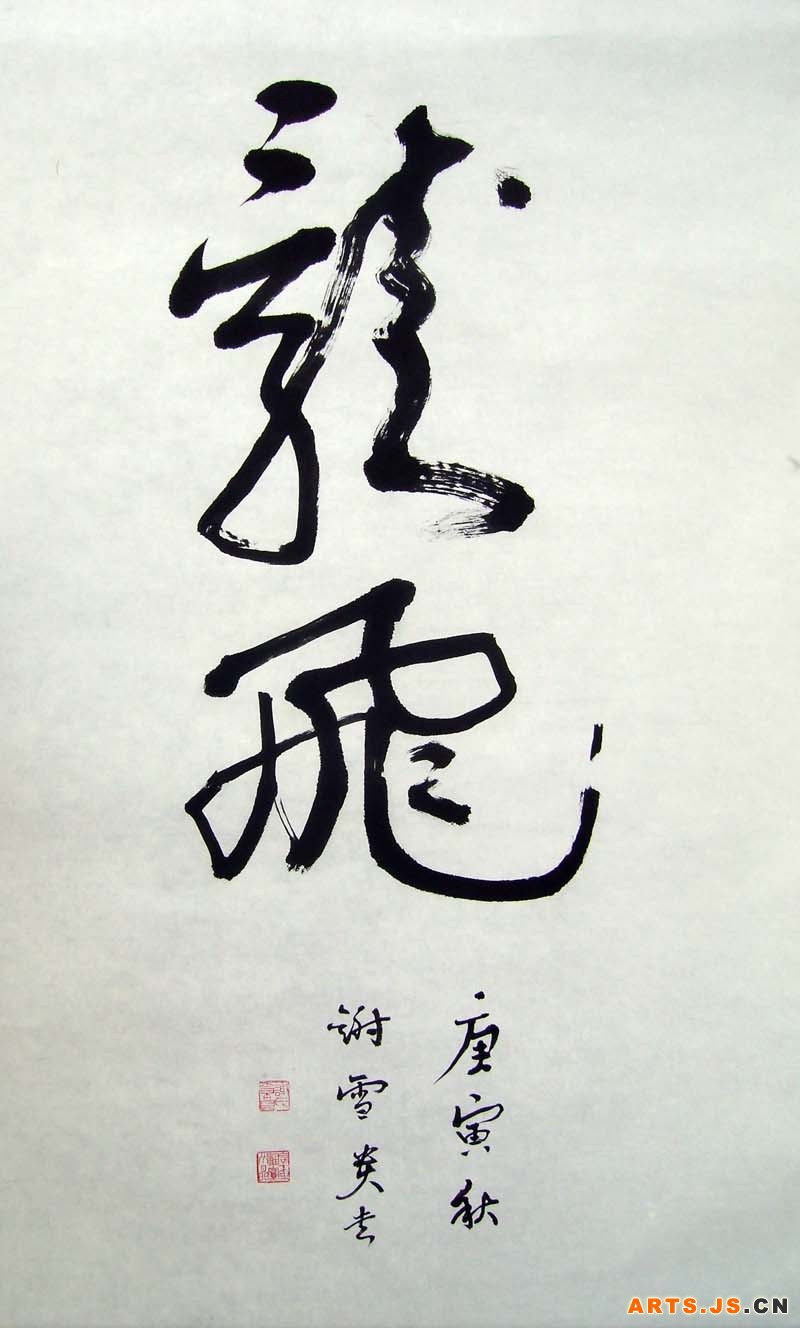 龍飛
庚寅秋
謝雪炎書
ARTS.JS.CN